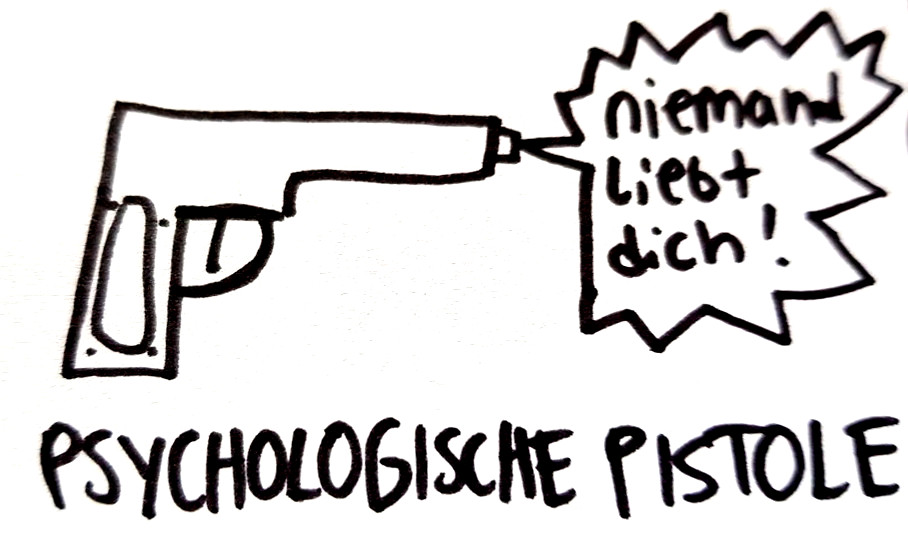 niemand
liebt
dich!
PSYCHOLOGISCHE PISTOLE